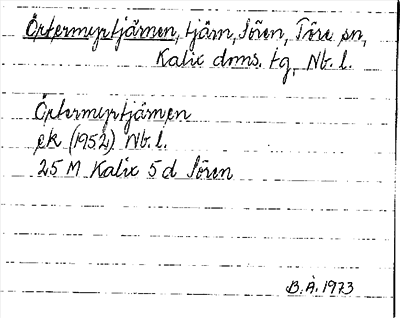 Örtermyrtjärnen, tjärn, Sören, Töre sn,
Kalix dms. tg, Nb. l.
Örtermyrtjärnen
ek (1952) Nb. l.
25 M Kalix 5 d Sören
B.Å. 1973